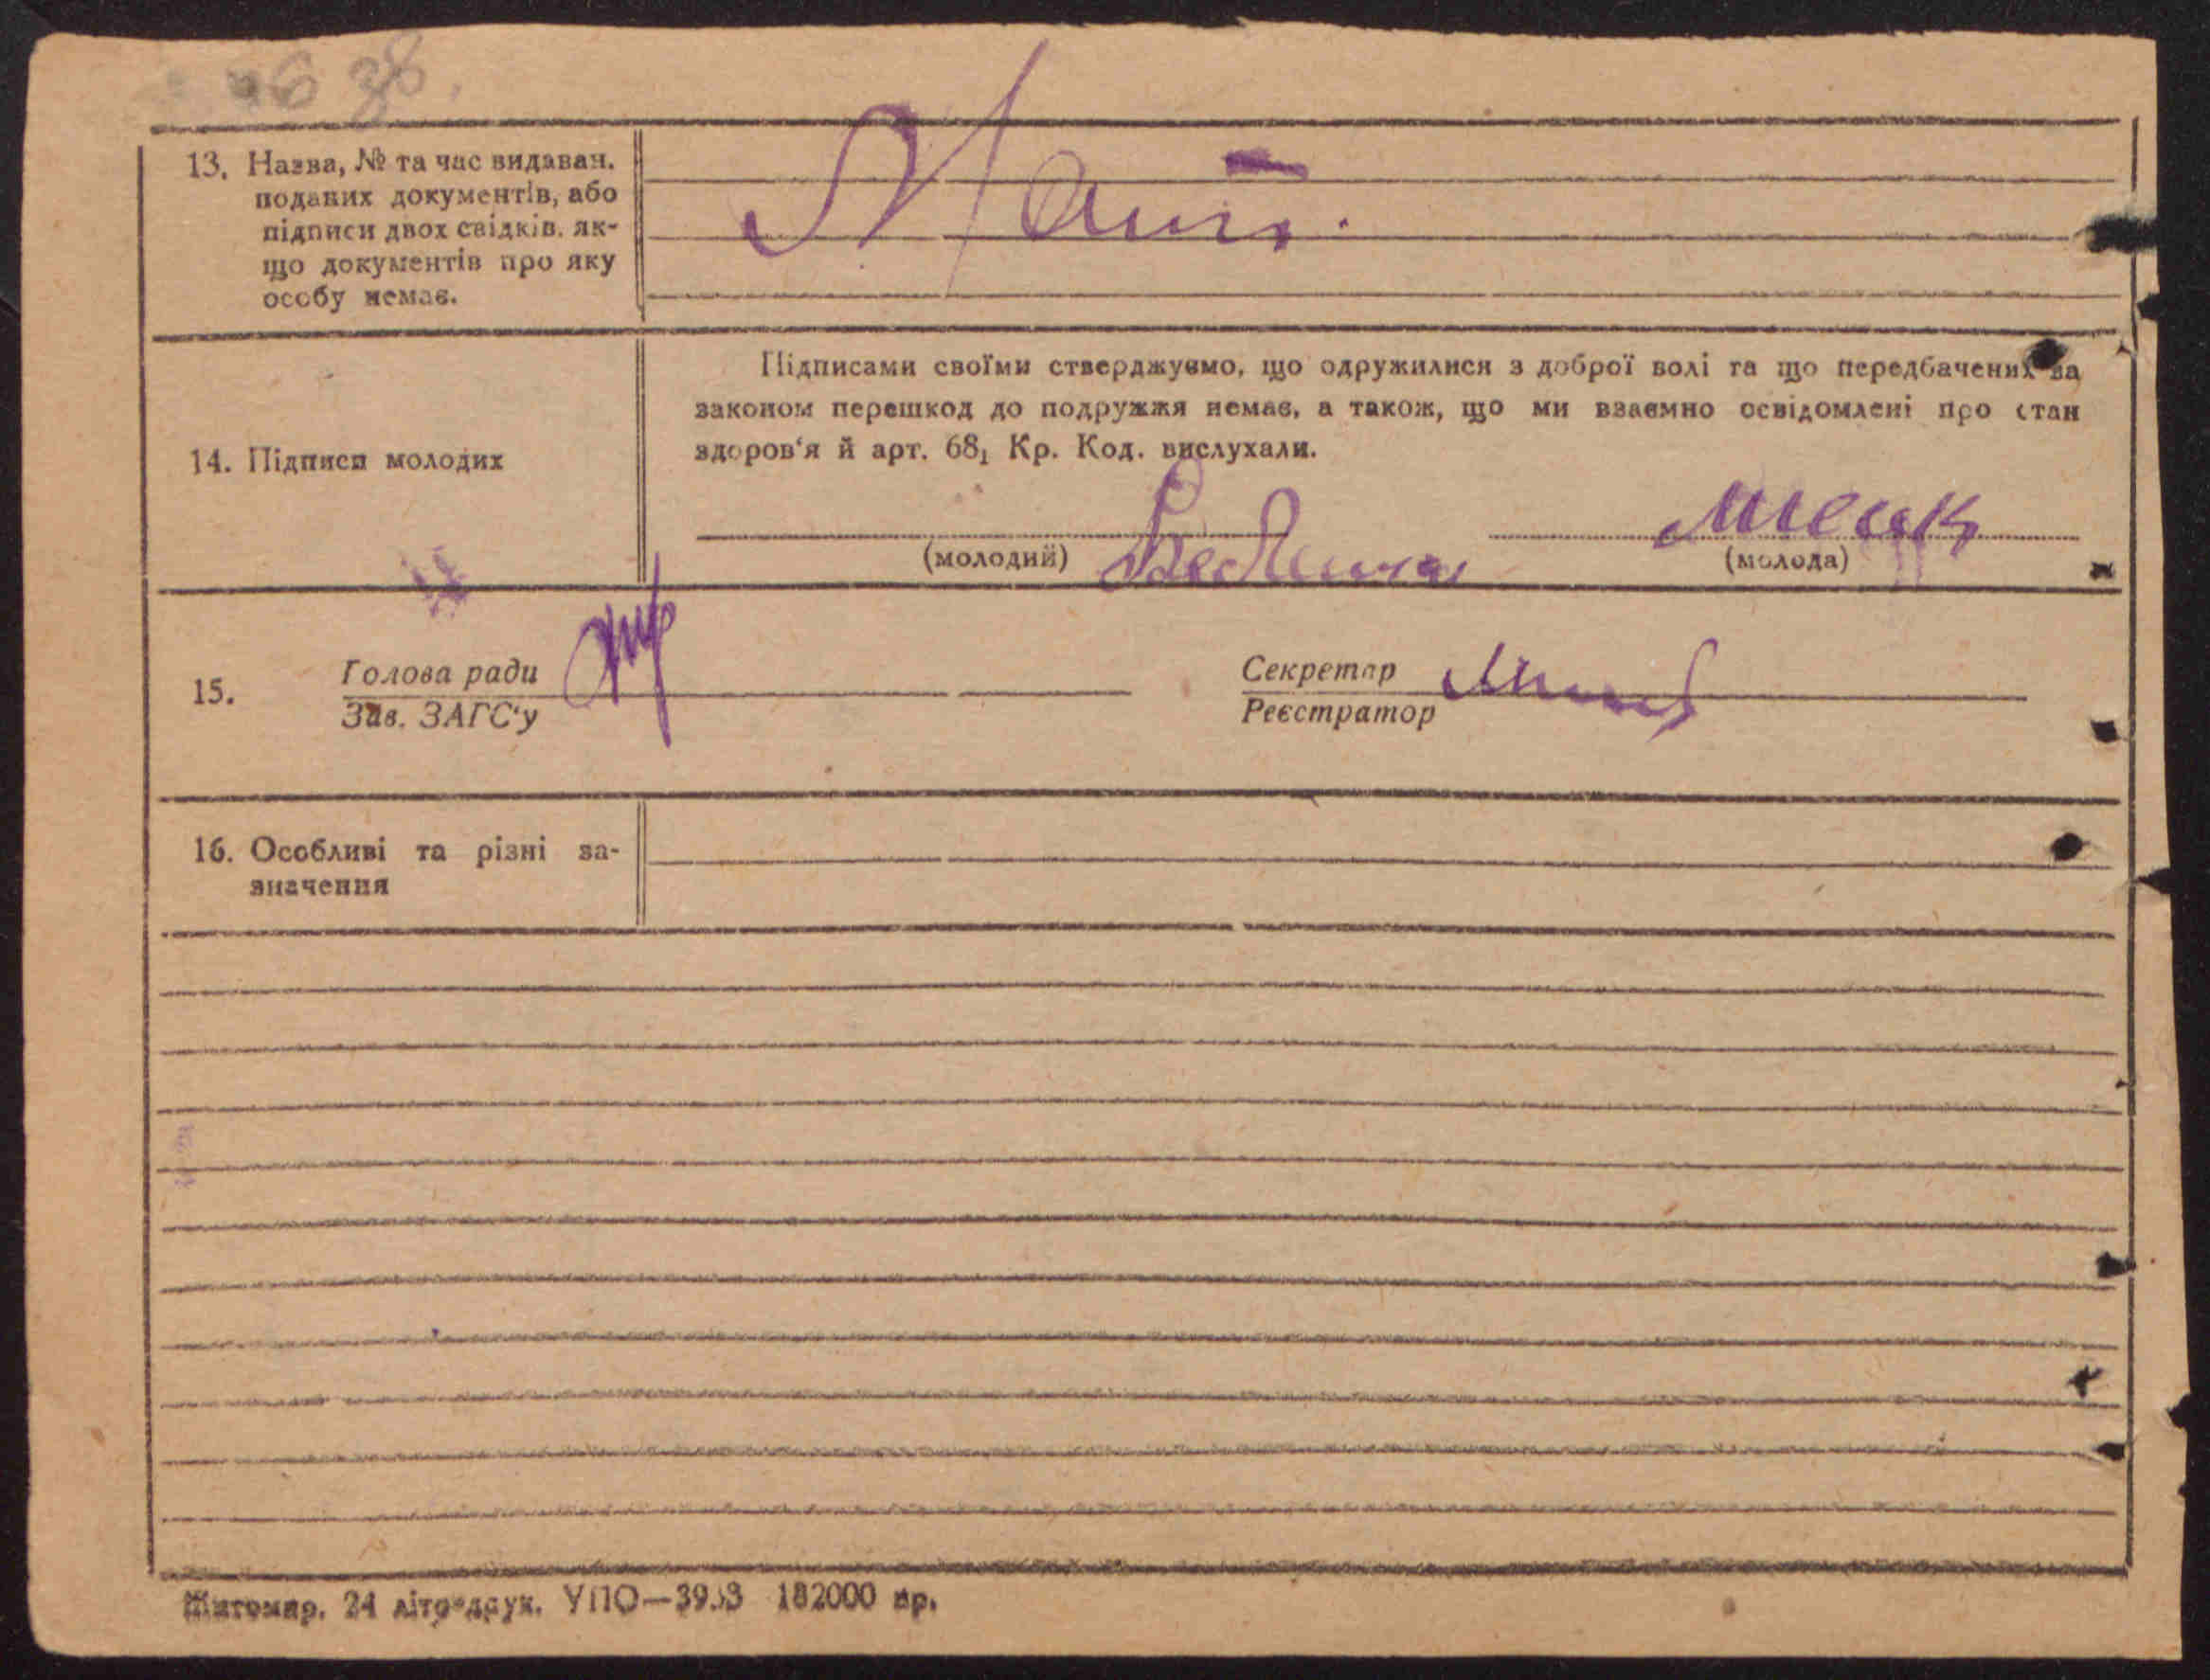 13. Назва, № та час видаван.
поданих документів, або
підписи двох свідків, як-
що документів про яку
особу немає.
14. Підписи молодих
Підписами своїми стверджуємо, що одружилися з доброї волі та що передбачених за
законом перешкод до подружжя немає, а також, що ми взаємно освідомлені про стан
здоров'я й арт. 68₁ Кр. Код. вислухали.
(молодий)
(молода)
15.
Голова ради
Зав. ЗАГС'у
Секретар
Реєстратор
16. Особливі та різні за-
значення
Житомир. 24 літо-друк. УПО— 182000 пр.